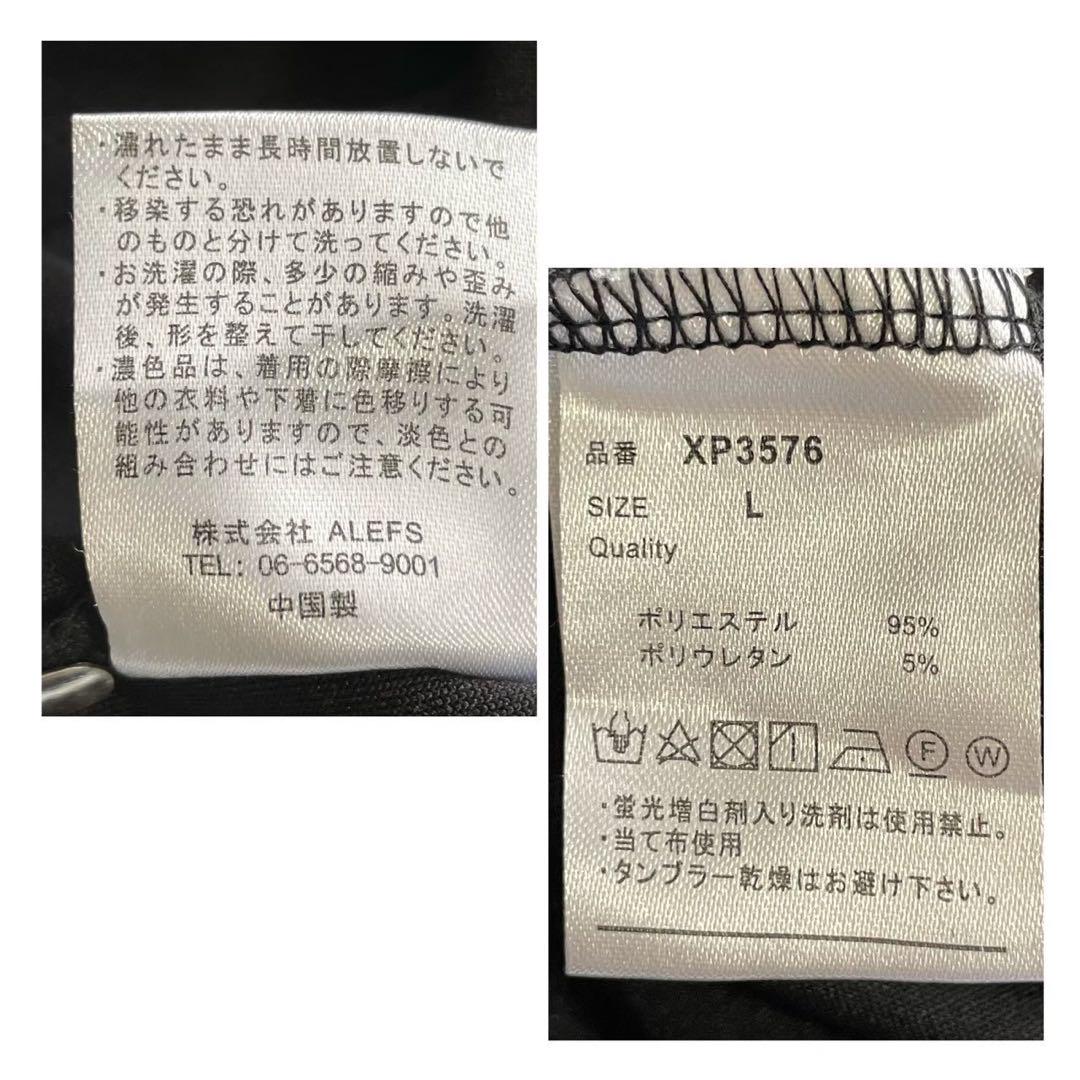 ・濡れたまま長時間放置しないで
ください。
・移染する恐れがありますので他
のものと分けて洗ってください。
・お洗濯の際、多少の縮みや歪み
が発生することがあります。洗濯
後、形を整えて干してください。
・濃色品は、着用の際摩擦により
他の衣料や下着に色移りする可
能性がありますので、淡色との
組み合わせにはご注意ください。
株式会社 ALEFS
TEL: 06-6568-9001
中国製
品番 XP3576
SIZE L
Quality
ポリエステル 95%
ポリウレタン 5%
F W
・蛍光増白剤入り洗剤は使用禁止。
・当て布使用
・タンブラー乾燥はお避け下さい。